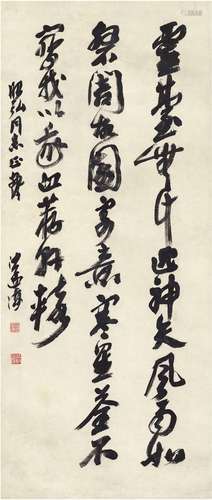 靈臺無計逃神矢風雨如
磐闇故園寄意寒星荃不
察我以我血薦軒轅
同志正